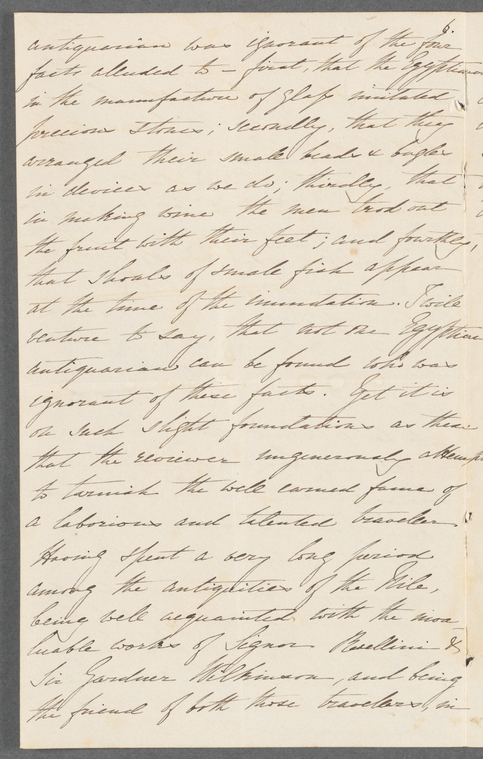 6.
antiquarian was ignorant of the four
facts alluded to – first, that the Egyptians
in the manufacture of glass imitated
precious stones; secondly, that they
arranged their small beads & bugles
in devices as we do; thirdly, that
in making wine the men trod out
the fruit with their feet; and fourthly,
that shoals of small fish appear
at the time of the inundation. I will
venture to say, that not one Egyptian
antiquarian can be found who was
ignorant of these facts. Yet it is
on such slight foundations as these
that the reviewer ungenerously attempts
to tarnish the well earned fame of
a laborious and talented traveller.
Having spent a very long period
among the antiquities of the Nile,
being well acquainted with the
luable works of Signor Rosellini &
Sir Gardner Wilkinson, and being
the friend of both those travellers, in